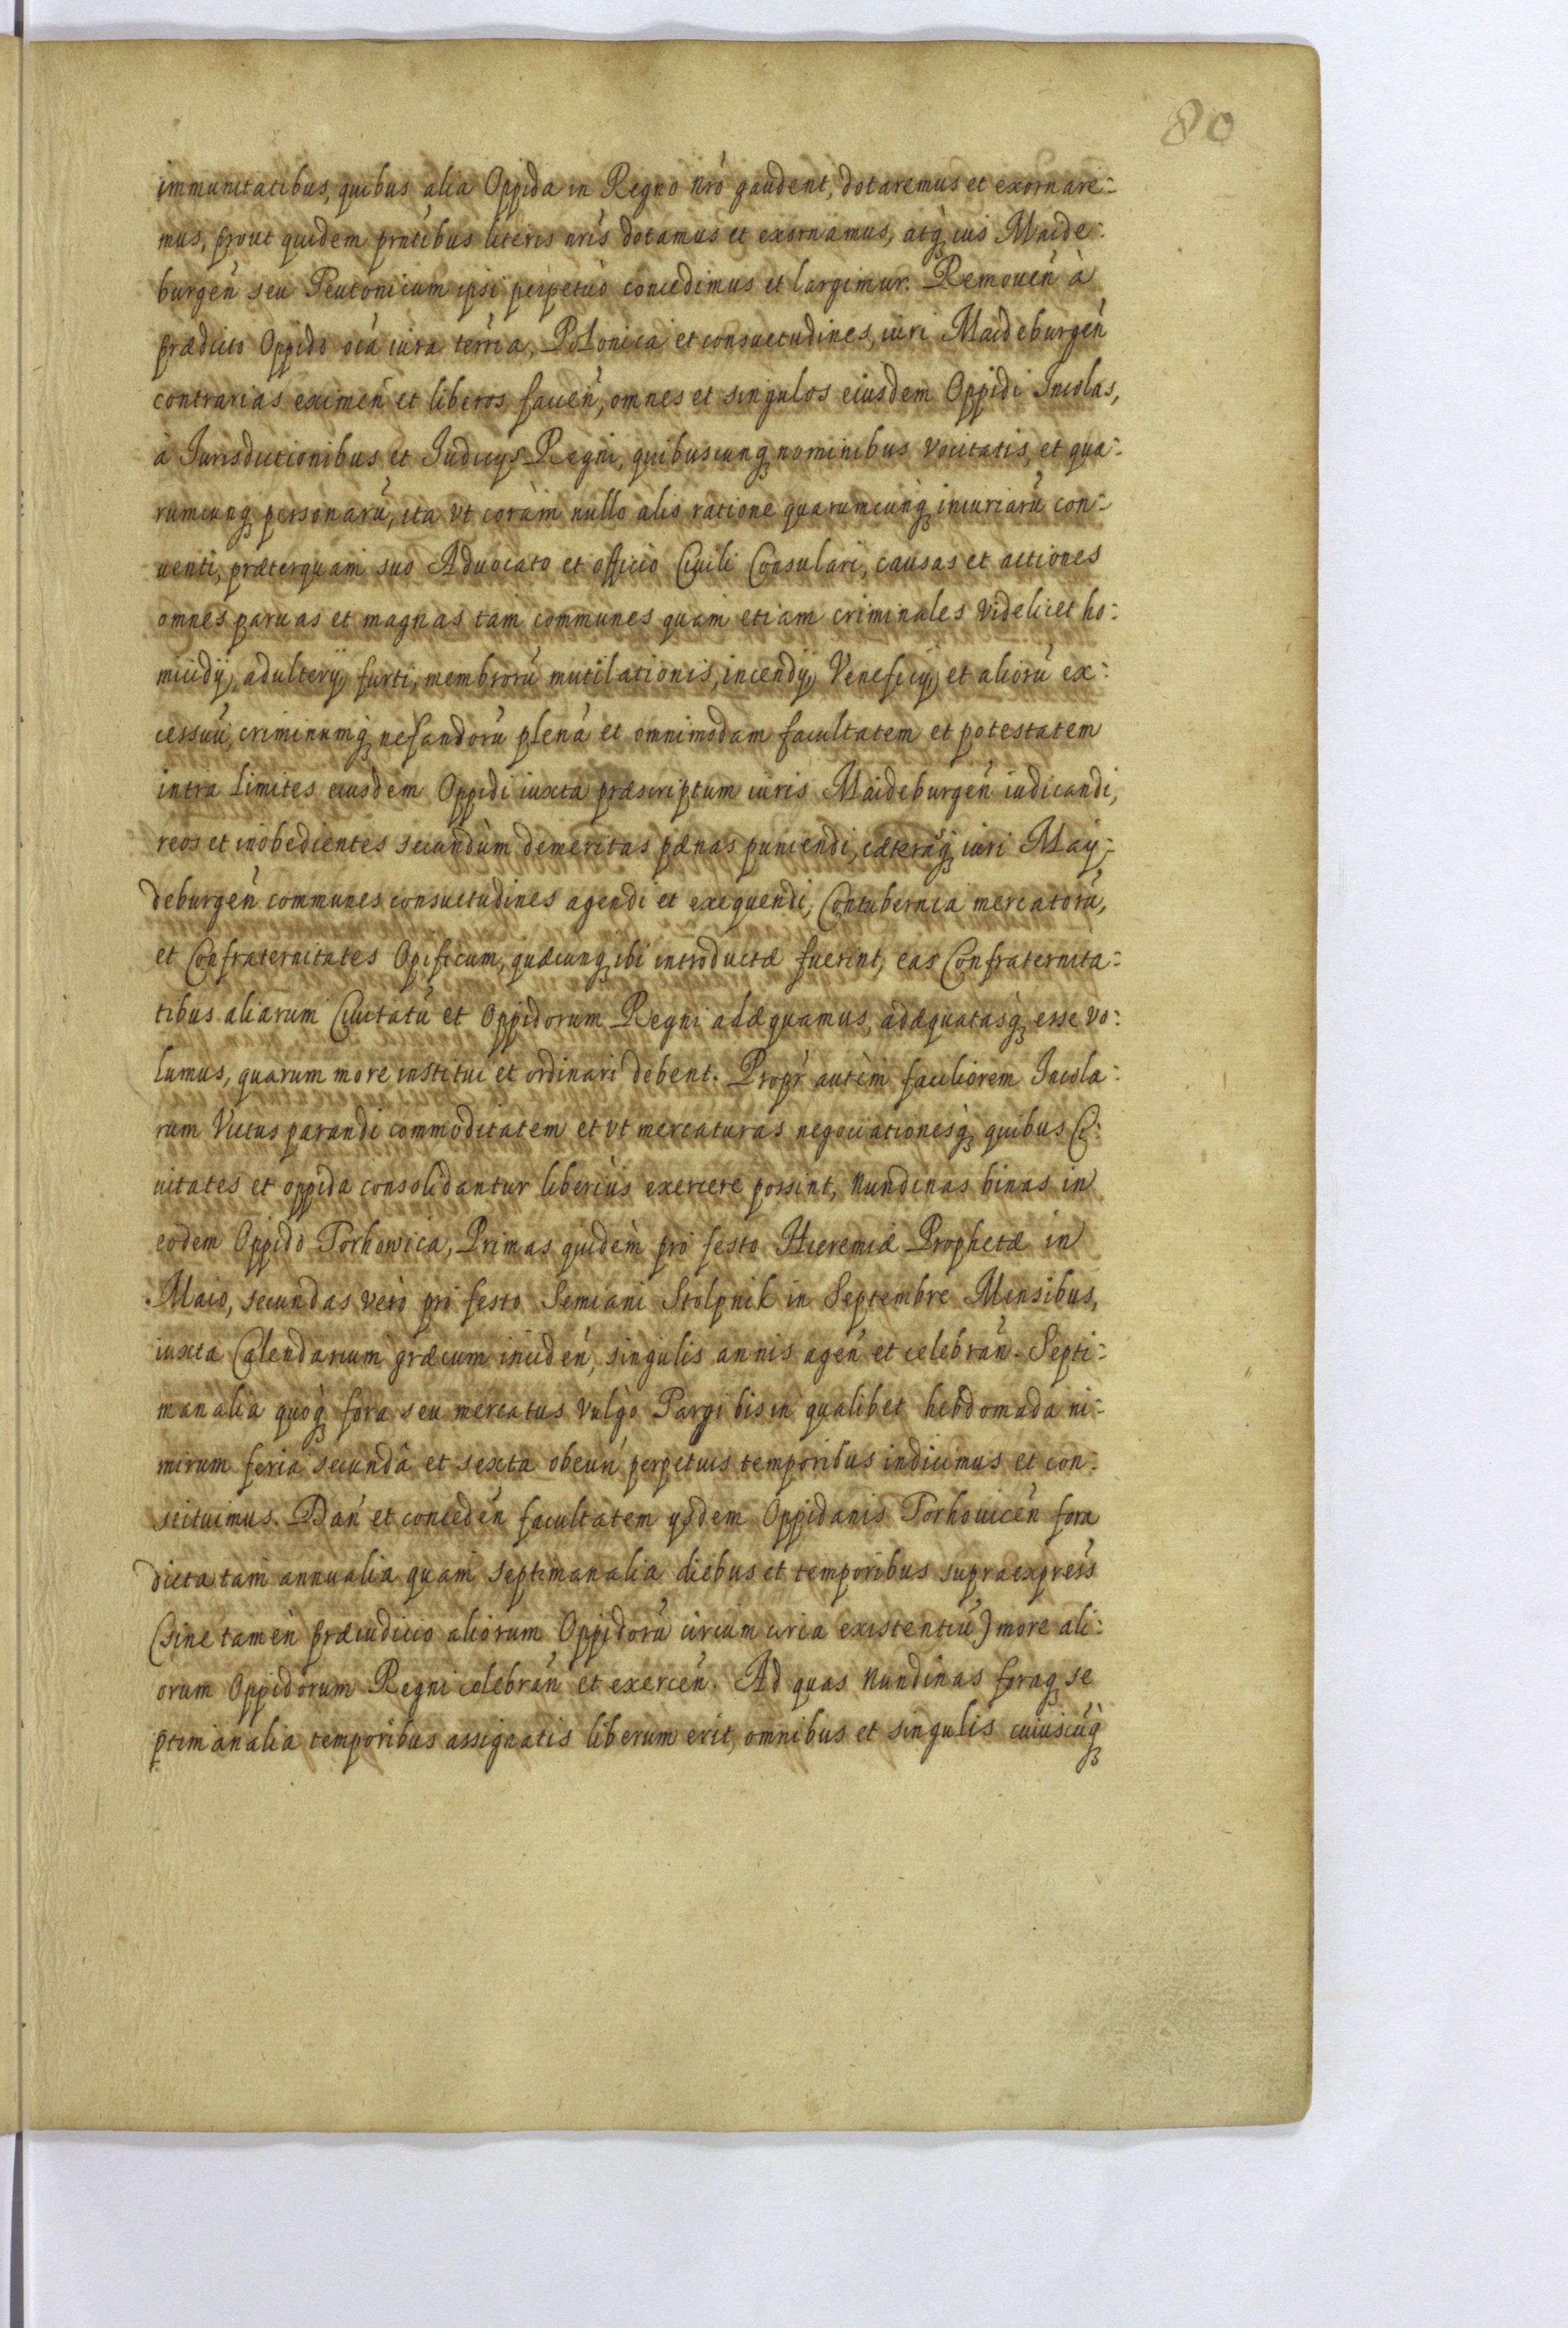 80
immunitatibus, quibus alia Oppida in Regno nrò gaudent, dotaremus et exornare:
mus, prout quidem pntibus literis nris dotamus et exornamus, atq; ius Maide:
burgeń seu Teutonicum ipsi perpetuò concedimus et largimur. Remoueń à
prædicto Oppido oiá iura terria, Polonica et consuetudines, iuri Maideburgeń
contrarias eximeń et liberos facień, omnes et singulos eiusdem Oppidi Incolas,
à Iurisdictionibus et Iudicys Regni, quibuscunq; nominibus vocitatis, et qua:
rumcunq; personarú, ita vt coràm nullo alio ratione quarumcunq; iniuriarú con:
uenti, præterquam suo Aduocato et officio Ciuili Consulari, causas et actiones
omnes paruas et magnas tam communes quam etiam criminales videlicet ho:
micidÿ, adulterÿ, furti, membrorú mutilationis, incendÿ, Veneficÿ, et aliorú ex:
cessuú, criminumq; nefandorú plená et omnimodam facultatem et potestatem
intra limites eiusdem Oppidi iuxta præscriptum iuris Maideburgeń iudicandi,
reos et inobedientes secundùm demeritas pænas puniendi, cæterasq; iuri May:
deburgeń communes consuetudines agendi et exequendi, Contubernia mercatorú,
et Confraternitates Opificum, quæcunq; ibi introductæ fuerint, eas Confraternita:
tibus aliarum Ciuitatú et Oppidorum Regni adæquamus, adæquatasq; esse vo:
lumus, quarum more institui et ordinari debent. Propr autèm faciliorem Incola:
rum Victus parandi commoditatem et vt mercaturas negociationesq; quibus Ci:
uitates et oppida consolidantur liberiùs exercere possint, Nundinas binas in
eodem Oppido Torhowica, Primas quidèm pro festo Hieremiæ Prophetæ in
Maio, secundas verò pro festo Semiani Stolpnik in Septembre Mensibus,
iuxta Calendarium græcum incideń, singulis annis ageń et celebrań. Septi:
manalia quoq; fora seu mercatus vulgò Targi bis in qualibet hebdomada ni:
mirum feria secundâ et sexta obeuń perpetuis temporibus indicimus et con:
stituimus. Dań et concedeń facultatem ysdem Oppidanis Torhouiceń fora
dicta tam annualia quam septimanalia diebus et temporibus supraexpress
(sine tamen præiudicio aliorum Oppidorú circùm circa existentiú) more ali:
orum Oppidorum Regni celebrań et exerceń. Ad quas Nundinas foraq; se
ptimanalia temporibus assignatis liberum erit, omnibus et singulis cuiuscúq;